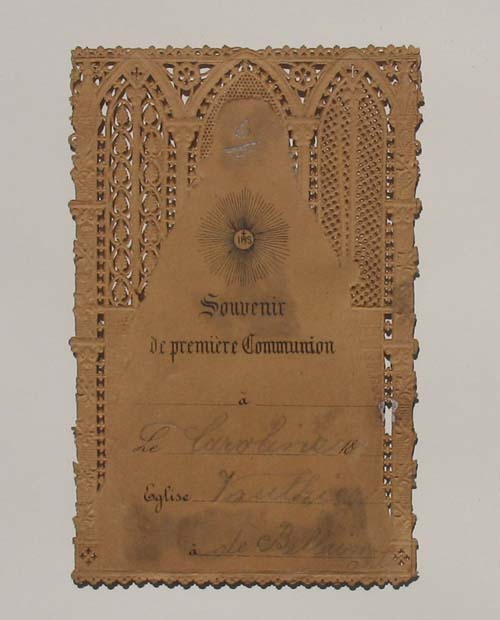 IHS
Souvenir
de première Communion
à
Le Caroline 18
Eglise
à de